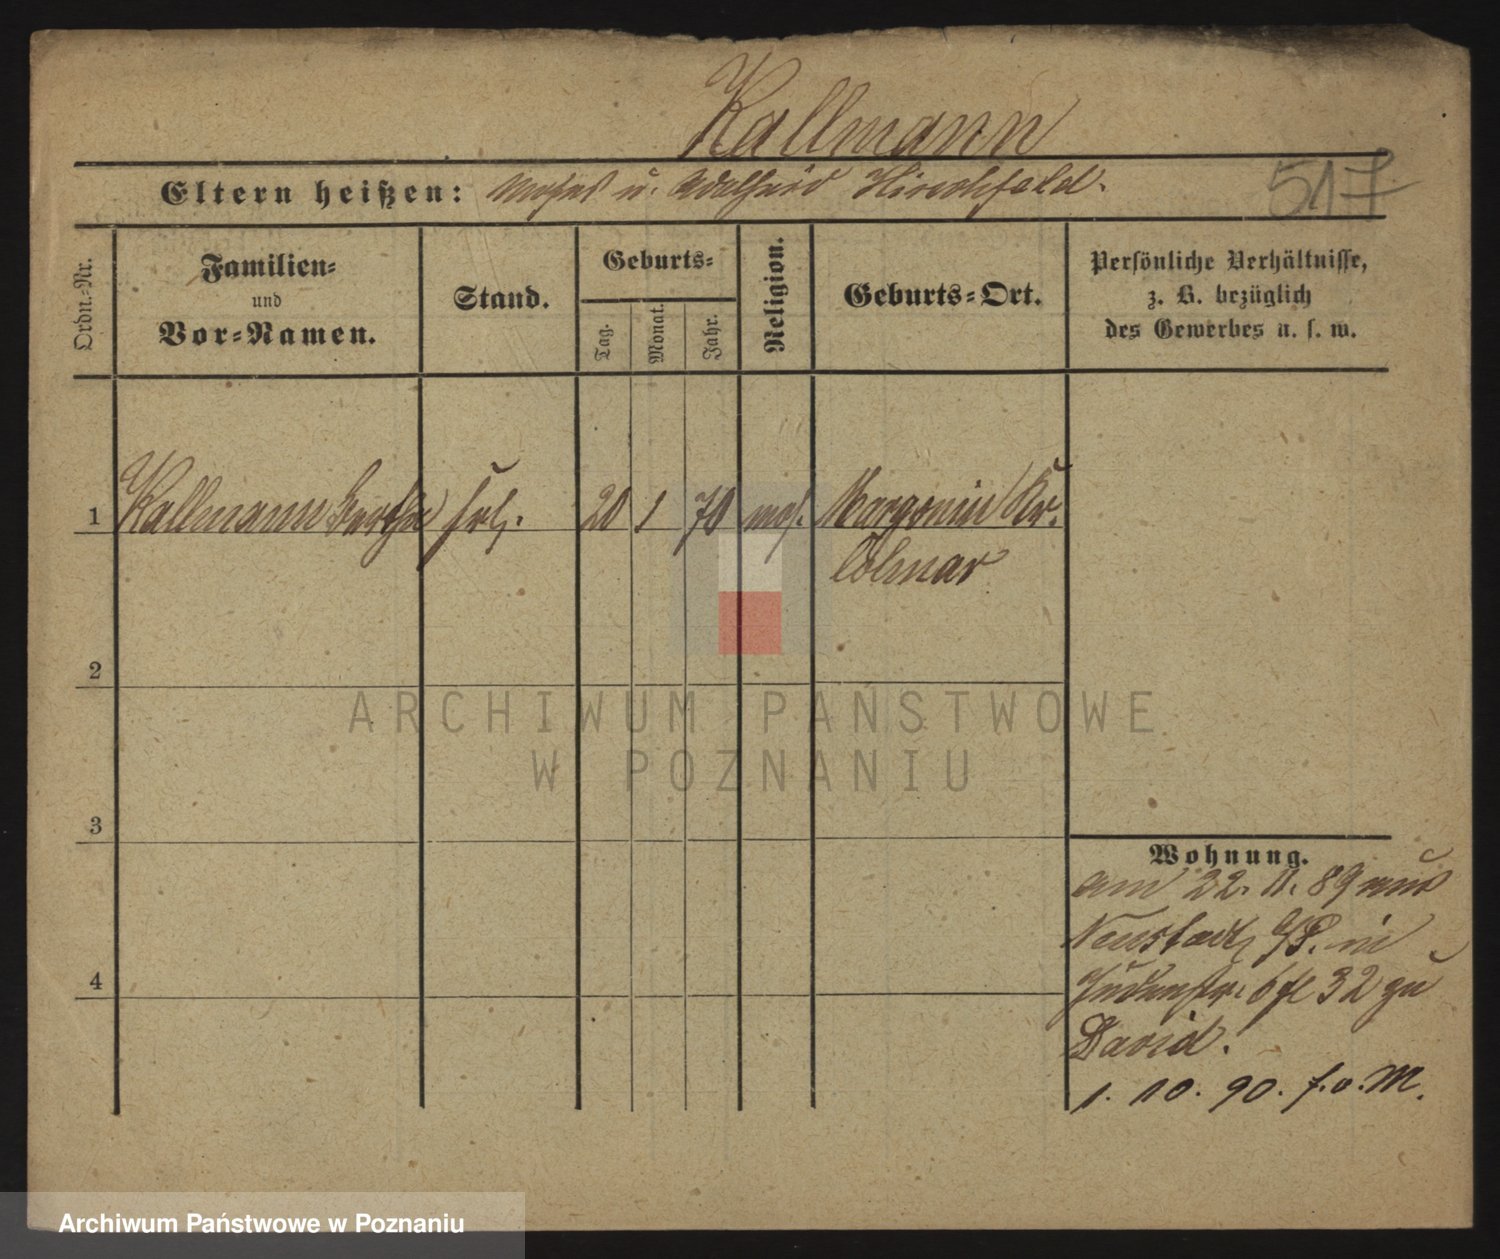 Kallmann
Eltern heißen: Moses u. Adelheid Hirschfeld.
517
Ordn.-Nr.
Familien-
und
Vor-Namen.
Stand.
Geburts-
Tag.
Monat.
Jahr.
Religion.
Geburts-Ort.
Persönliche Verhältnisse,
z. B. bezüglich
des Gewerbes u. s. w.
1 Kallmann Bertha frl. 20 1 70 mos. Margonin Kr.
Colmar
2
3
4
Wohnung.
am 22. 11. 89 aus
Neustadt in
Judenstr. 32 zu
David.
1. 10. 90. f. o. M.
ARCHIWUM PAŃSTWOWE
W POZNANIU
Archiwum Państwowe w Poznaniu